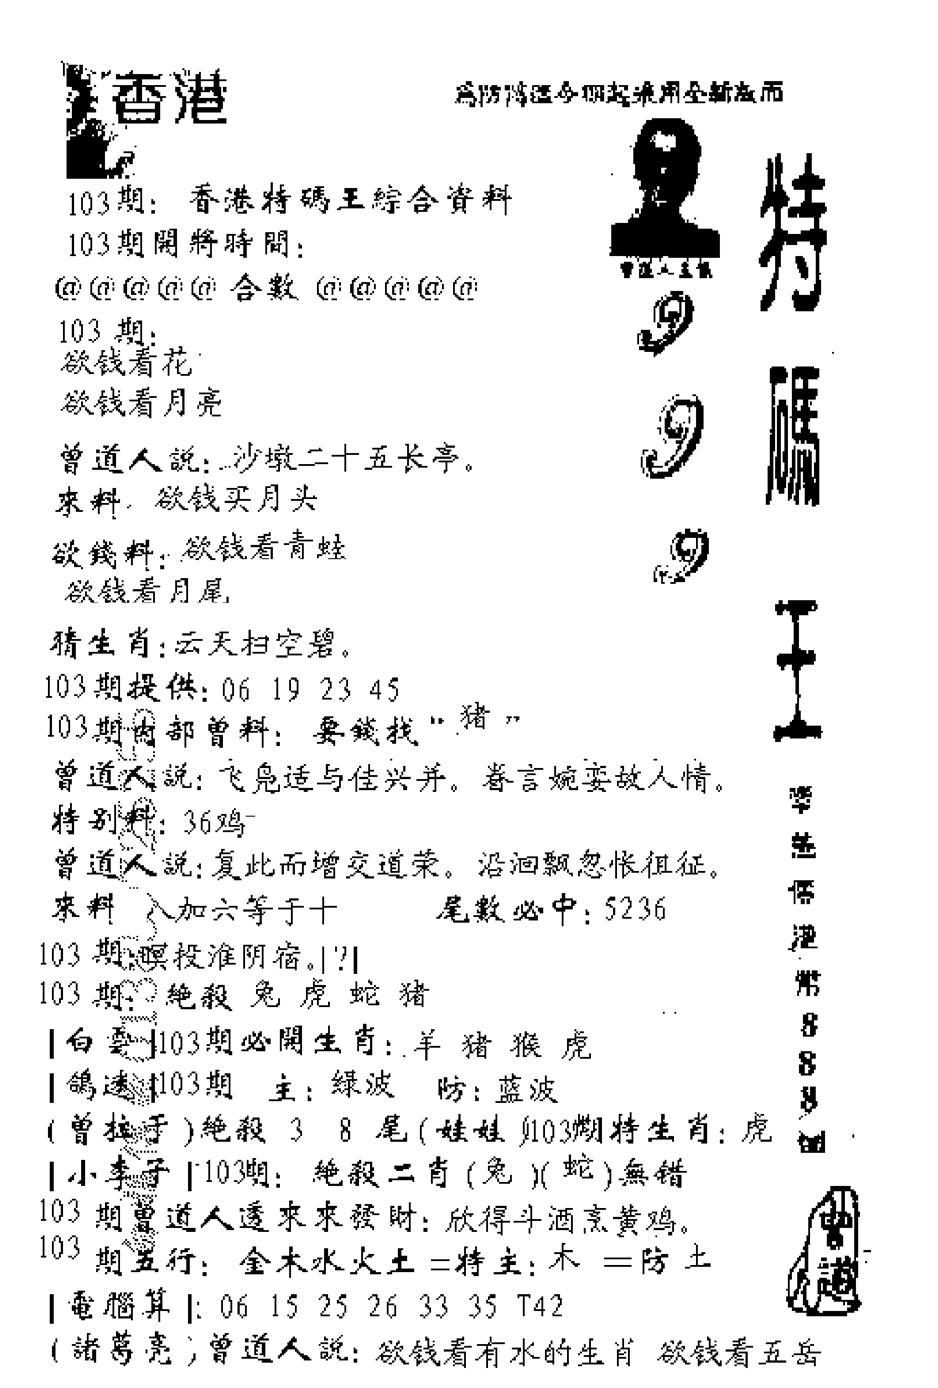 香港
特碼王
999
103期：香港特碼王綜合資料
103期開將時間：
@@@@@ 合數 @@@@@
103 期：
欲钱看花
欲钱看月亮
曾道人説：沙墩二十五长亭。
來料 欲钱买月头
欲錢料：欲钱看青蛙
欲钱看月尾
猜生肖：云天扫空碧。
103期提供：06 19 23 45
103期内部曾料：要錢找“猪”
曾道人説：飞凫适与佳兴并。眷言婉娈故人情。
特别料：36鸡
曾道人説：复此而增交道荣。沿洄飘忽怅徂征。
來料 入加六等于十 尾數必中：5236
103 期：暝投淮阴宿。|?|
103 期：絶殺 兔 虎 蛇 猪
|白雲|103期必開生肖：羊 猪 猴 虎
103期 主：緑波 防：蓝波
絶殺 3 8 尾(娃娃)103期特生肖：虎
|小李子|103期：絶殺二肖(兔)(蛇)無错
103 期曾道人透來來發財：欣得斗酒烹黄鸡。
103 期五行：金木水火土=特主：木 =防 土
|電腦算|：06 15 25 26 33 35 T42
(諸葛亮)曾道人説：欲钱看有水的生肖 欲钱看五岳
888
曾道